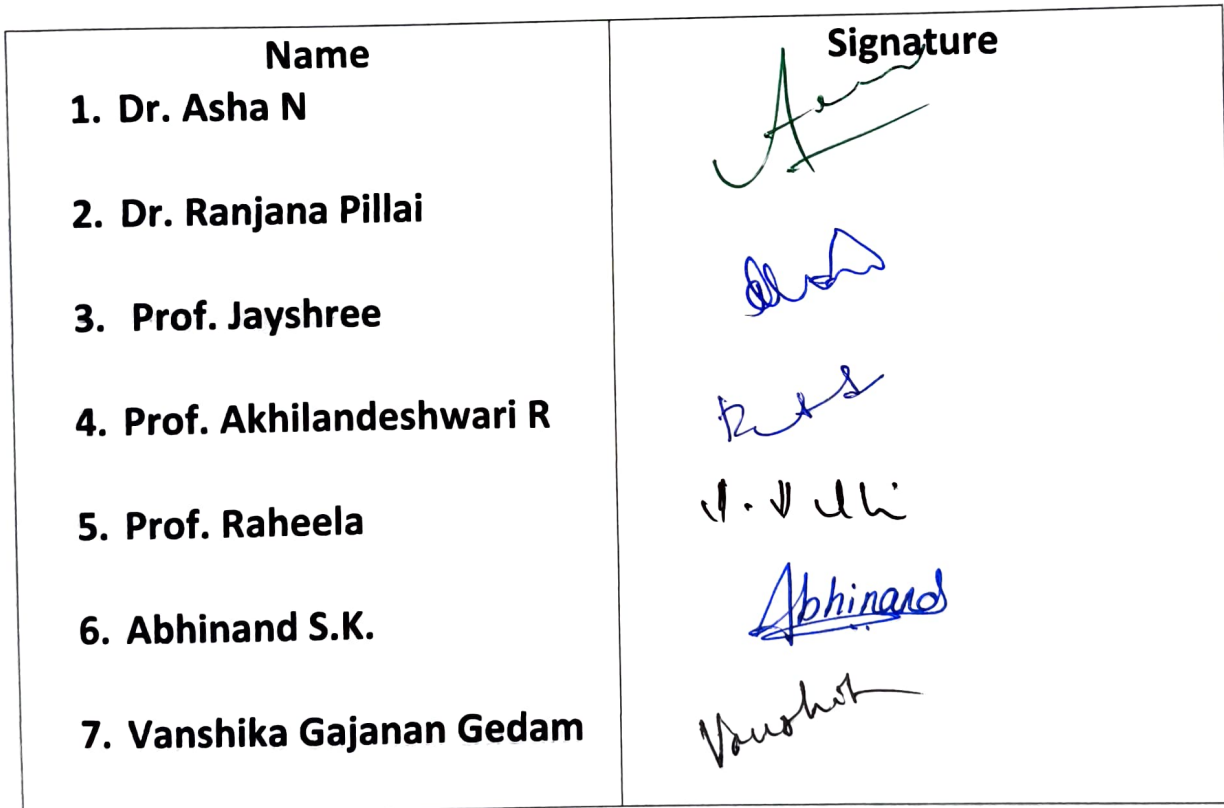 Name
Signature
1. Dr. Asha N
2. Dr. Ranjana Pillai
3. Prof. Jayshree
4. Prof. Akhilandeshwari R
5. Prof. Raheela
6. Abhinand S.K.
Abhinand
7. Vanshika Gajanan Gedam